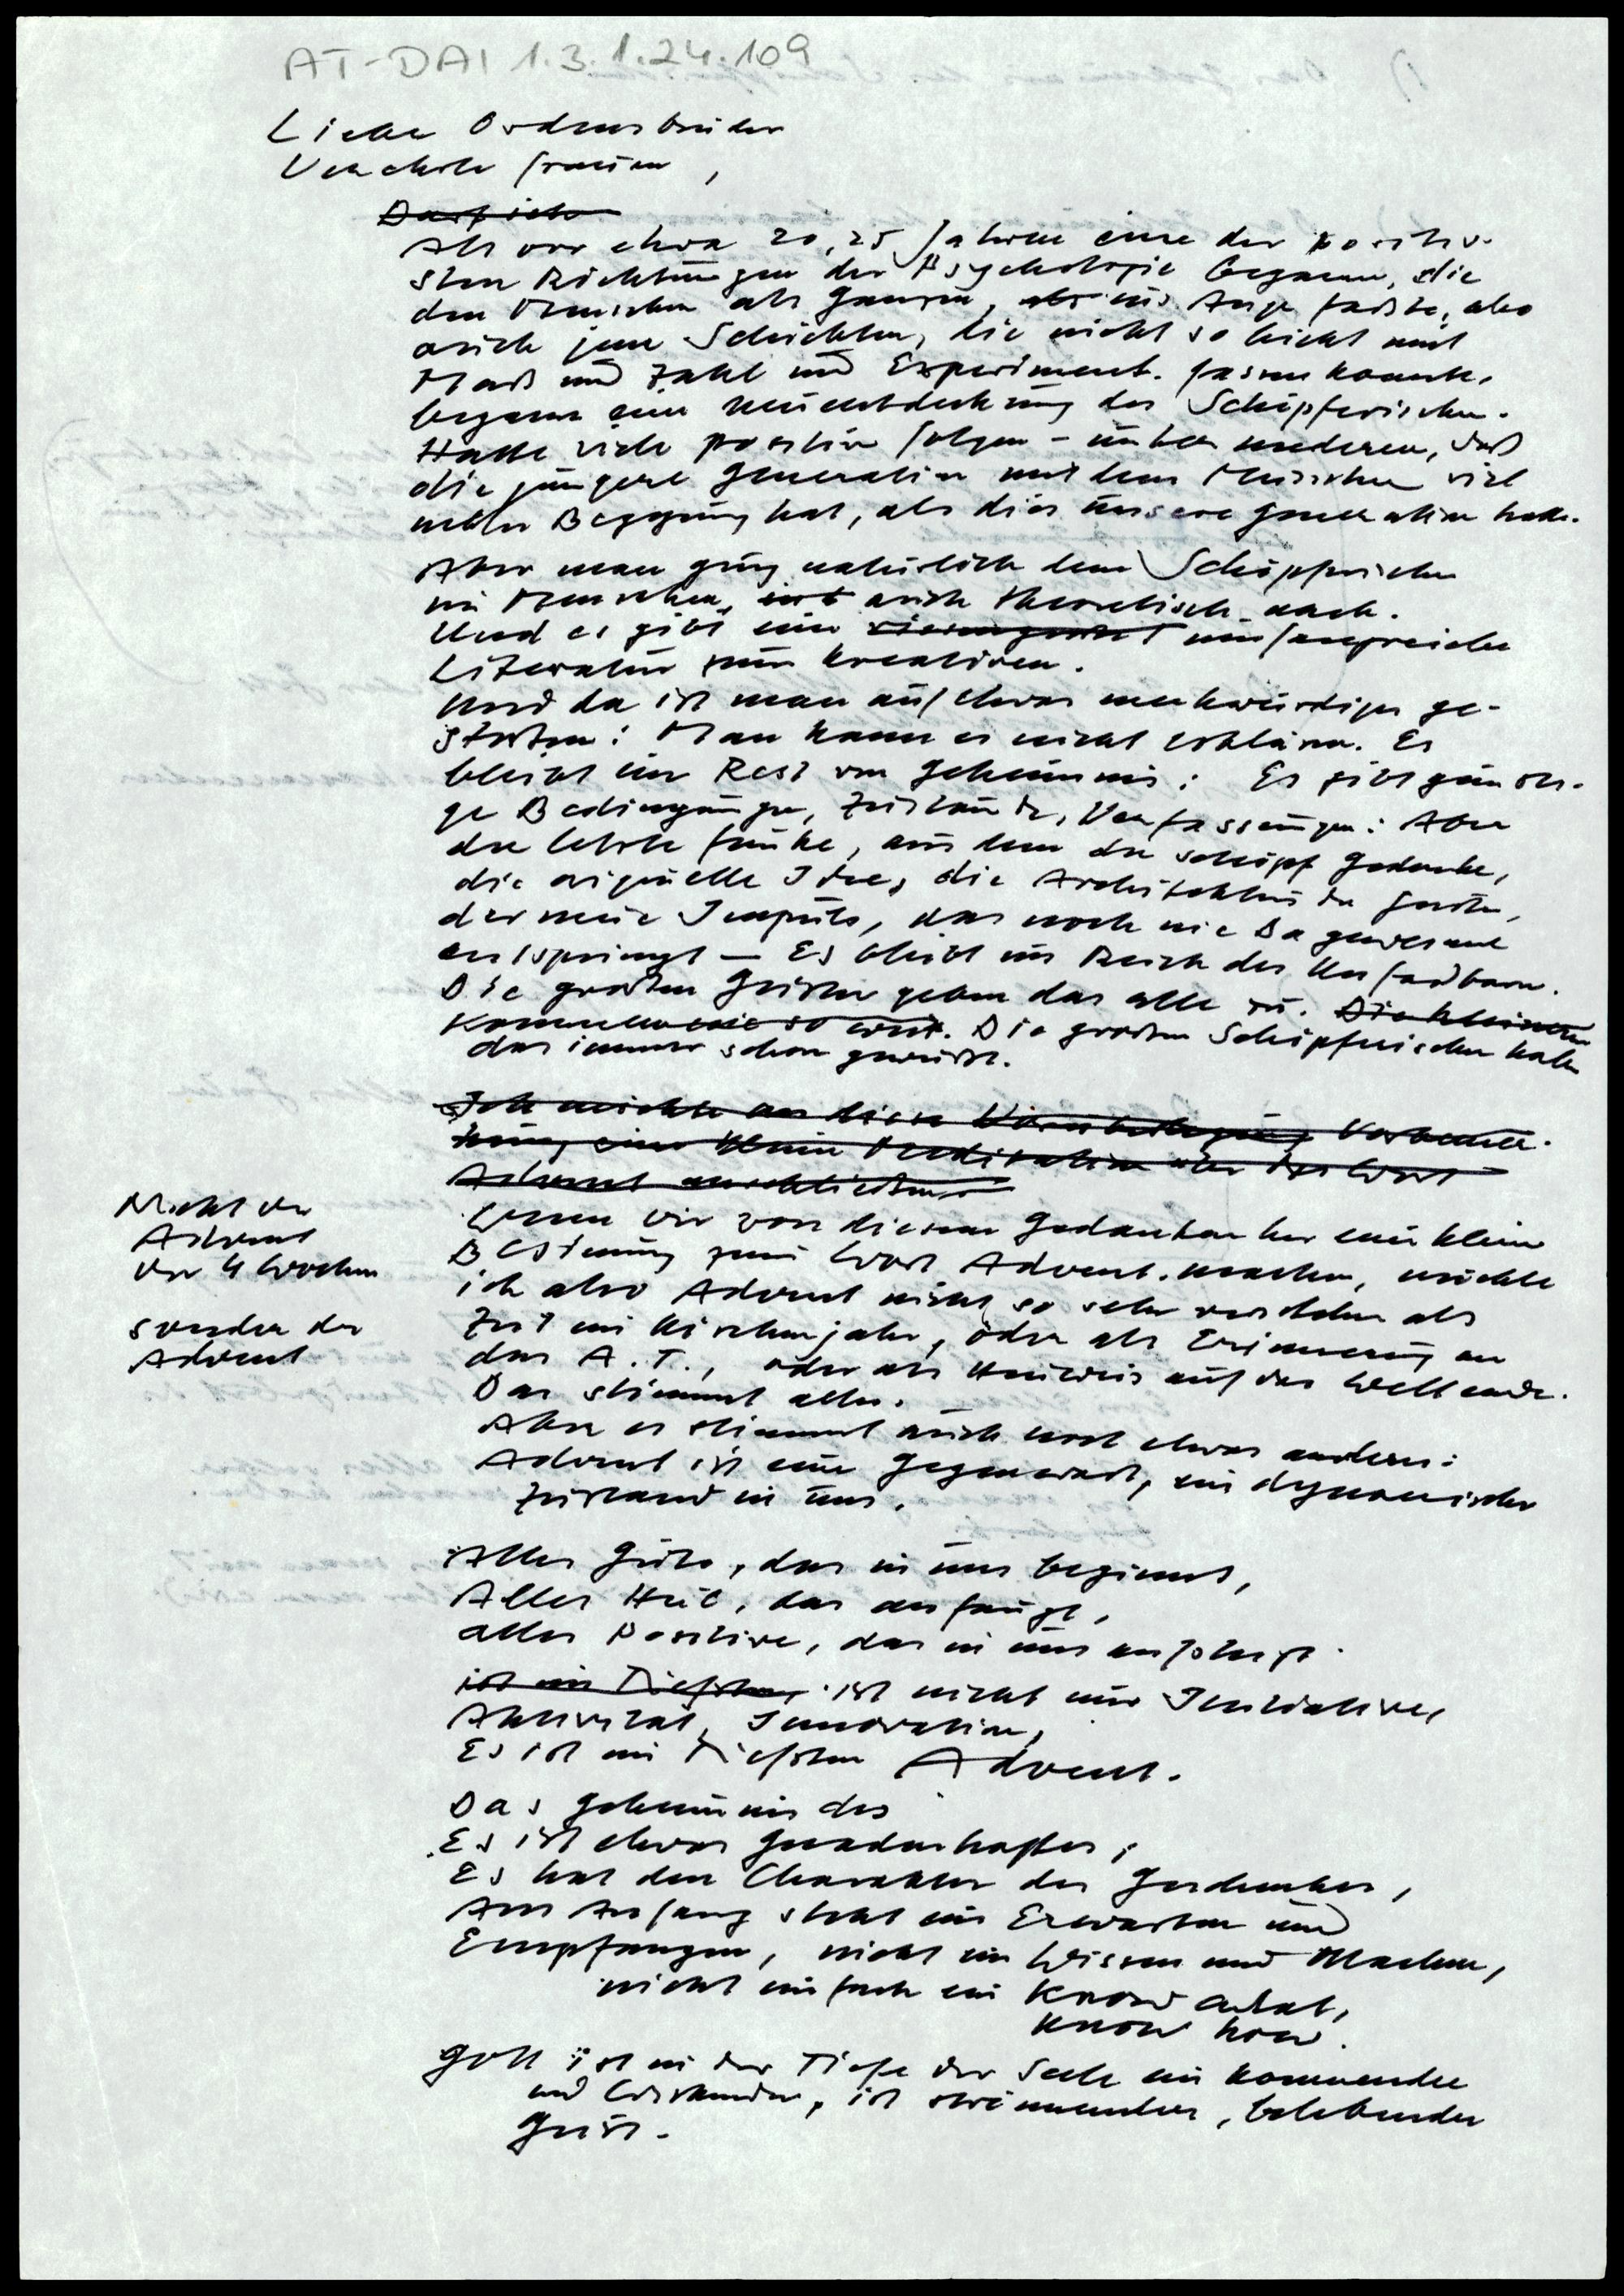 AT-DAI 1.3.1.24.109
Liebe Ordensbrüder
Verehrte Frauen,
Darf ich
Als vor etwa 20, 25 Jahren eine der positiv-
sten Richtungen der Psychologie begann, die
den Menschen als Ganzen, ins Auge faßte, also
auch jene Schichten, die nicht so leicht mit
Maß und Zahl und Experiment. fassen konnte,
begann eine Neuentdeckung des Schöpferischen.
Hatte viele positive Folgen - unter anderem, daß
die jüngere Generation mit dem Musischen viel
mehr Begegnung hat, als dies unsere Generation hatte.
Aber man ging natürlich dem Schöpferischen
im Menschen, auch theoretisch nach.
Und es gibt eine umfangreiche
Literatur zum Kreativen.
Und da ist man auf etwas merkwürdiges ge-
stoßen: Man kann es nicht erklären. Es
bleibt ein Rest von Geheimnis: Es gibt günsti-
ge Bedingungen, Zustände, Verfassungen: Aber
der letzte Funke, aus dem der schöpf Gedanke,
die originelle Idee, die Architektur der
der neue Impuls, das noch nie Da gewesene
entspringt — Es bleibt im Reich des Unfaßbaren.
Die großen Geister geben das alle zu. Die kleineren
Kommen nie so weit. Die großen Schöpferischen haben
das immer schon gewußt.
Ich möchte an diese Vorbemer-
kung eine kleine Meditation über das Wort
Advent anschließen
Nicht der
Advent
der 4 Wochen
sondern der
Advent
Wenn wir von diesem Gedanken her eine kleine
Besinnung zum Wort Advent. machen, möchte
ich also Advent nicht so sehr verstehen als
Zeit im Kirchenjahr, oder als Erinnerung an
das A.T., oder als Hinweis auf das Weltende.
Das stimmt alles.
Aber es stimmt auch noch etwas anderes:
Advent ist eine Gegenwart, ein dynamischer
Zustand in uns.
Alles Gute, das in uns beginnt,
Alles Heil, das anfängt,
alles Positive, das in uns aufsteigt
ist im Tiefsten, ist nicht nur Initiative,
Aktivität, Innovation,
Es ist im Tiefsten Advent.
Das Geheimnis des
Es ist etwas Gnadenhaftes;
Es hat den Charakter des Geschenkes,
Am Anfang steht ein Erwarten und
Empfangen, nicht ein Wissen und Machen,
nicht einfach ein Know what,
Know how.
Gott ist in der Tiefe der Seele ein Kommender
und Wirkender, ist strömender, belebender
Geist.